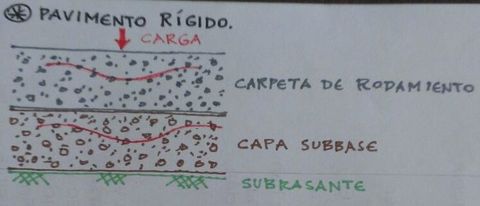 PAVIMENTO RÍGIDO.
CARGA
CARPETA DE RODAMIENTO
CAPA SUBBASE
SUBRASANTE